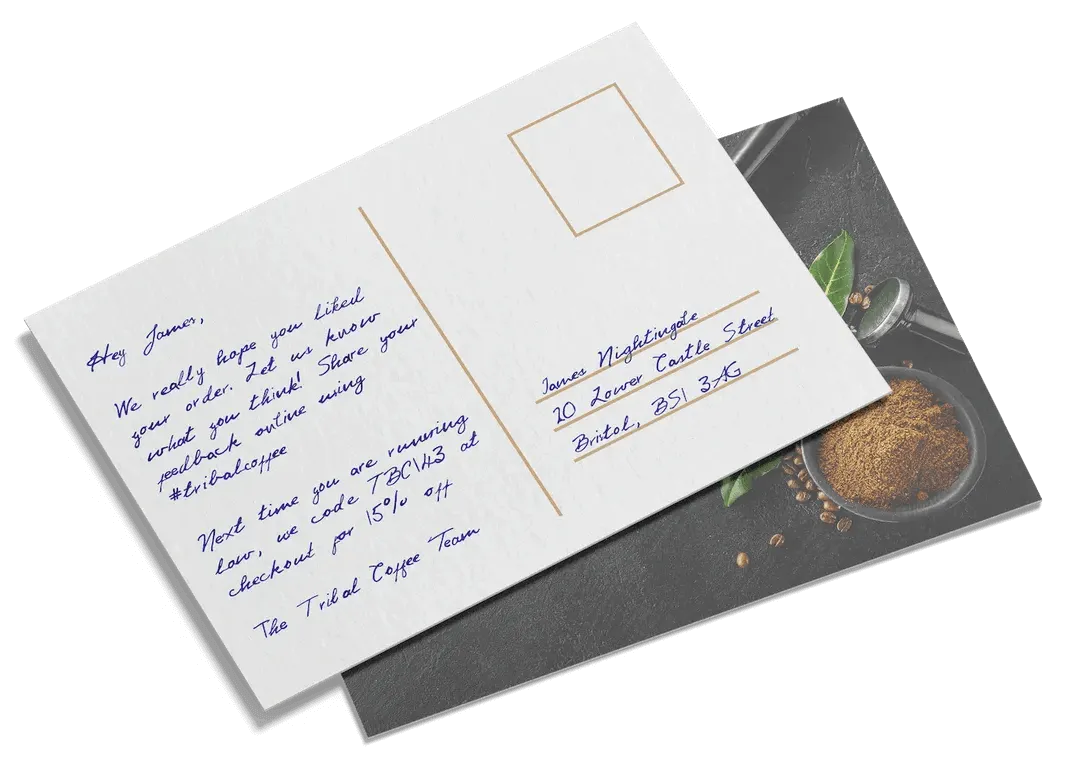 Hey James,
We really hope you liked
your order. Let us know
what you think! Share your
feedback online using
#tribalcoffee
Next time you are running
low, use code TBC143 at
checkout for 15% off
The Tribal Coffee Team
James Nightingale
20 Lower Castle Street
Bristol, BS1 3AG